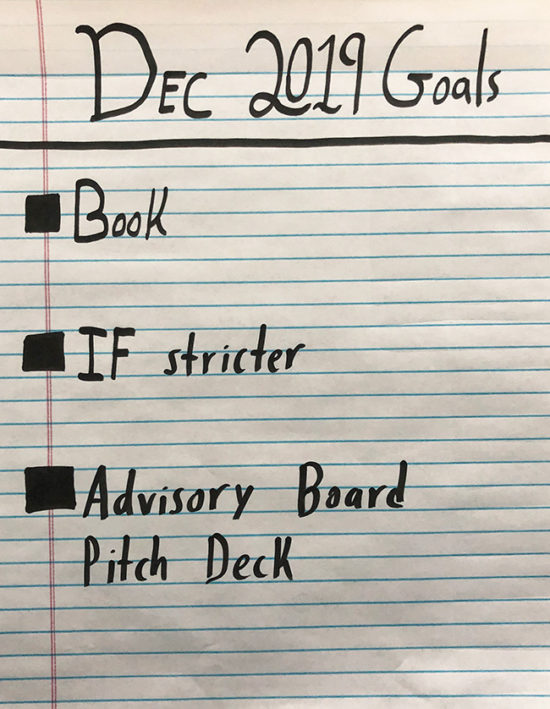 Dec 2019 Goals
Book
IF stricter
Advisory Board
Pitch Deck